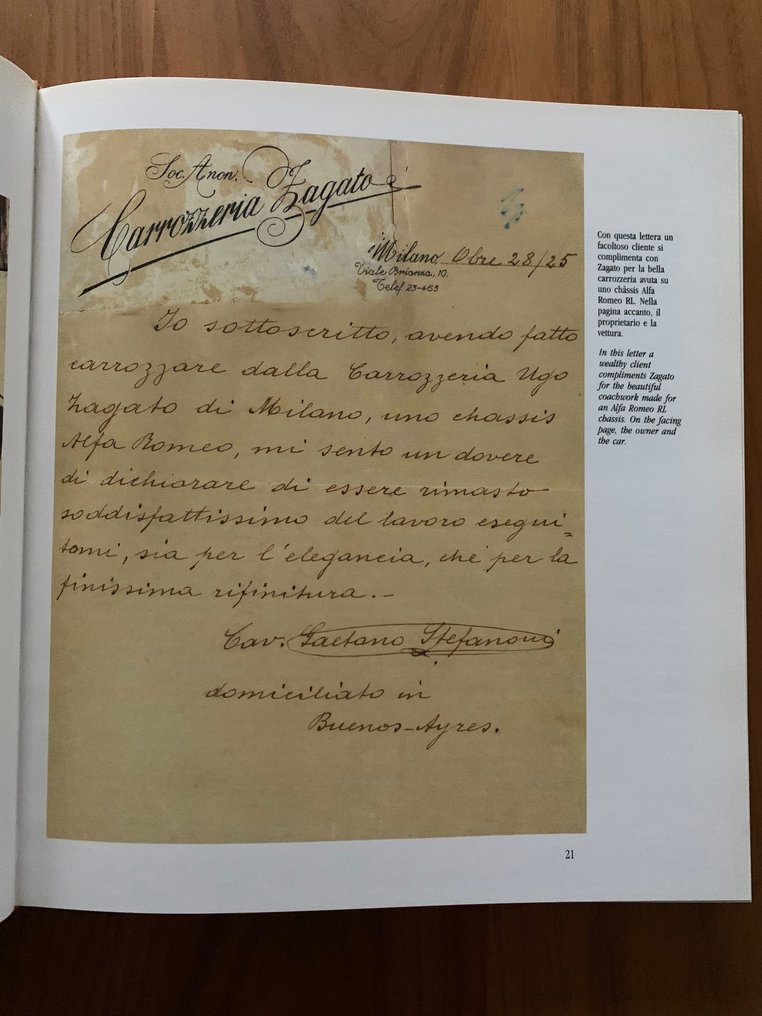 Soc. Anon.
Carrozzeria Zagato
Milano Obre 28/25
Viale Brianza, 10.
Telef. 23-463
Io sottoscritto, avendo fatto
carrozzare dalla Carrozzeria Ugo
Zagato di Milano, uno chassis
Alfa Romeo, mi sento un dovere
di dichiarare di essere rimasto
soddisfattissimo del lavoro esegui=
tomi, sia per l'elegancia, che per la
finissima rifinitura.-
Cav. Gaetano Stefanoni
domiciliato in
Buenos-Ayres.
Con questa lettera un
facoltoso cliente si
complimenta con
Zagato per la bella
carrozzeria avuta su
uno châssis Alfa
Romeo RL. Nella
pagina accanto, il
proprietario e la
vettura.
In this letter a
wealthy client
compliments Zagato
for the beautiful
coachwork made for
an Alfa Romeo RL
chassis. On the facing
page, the owner and
the car.
21